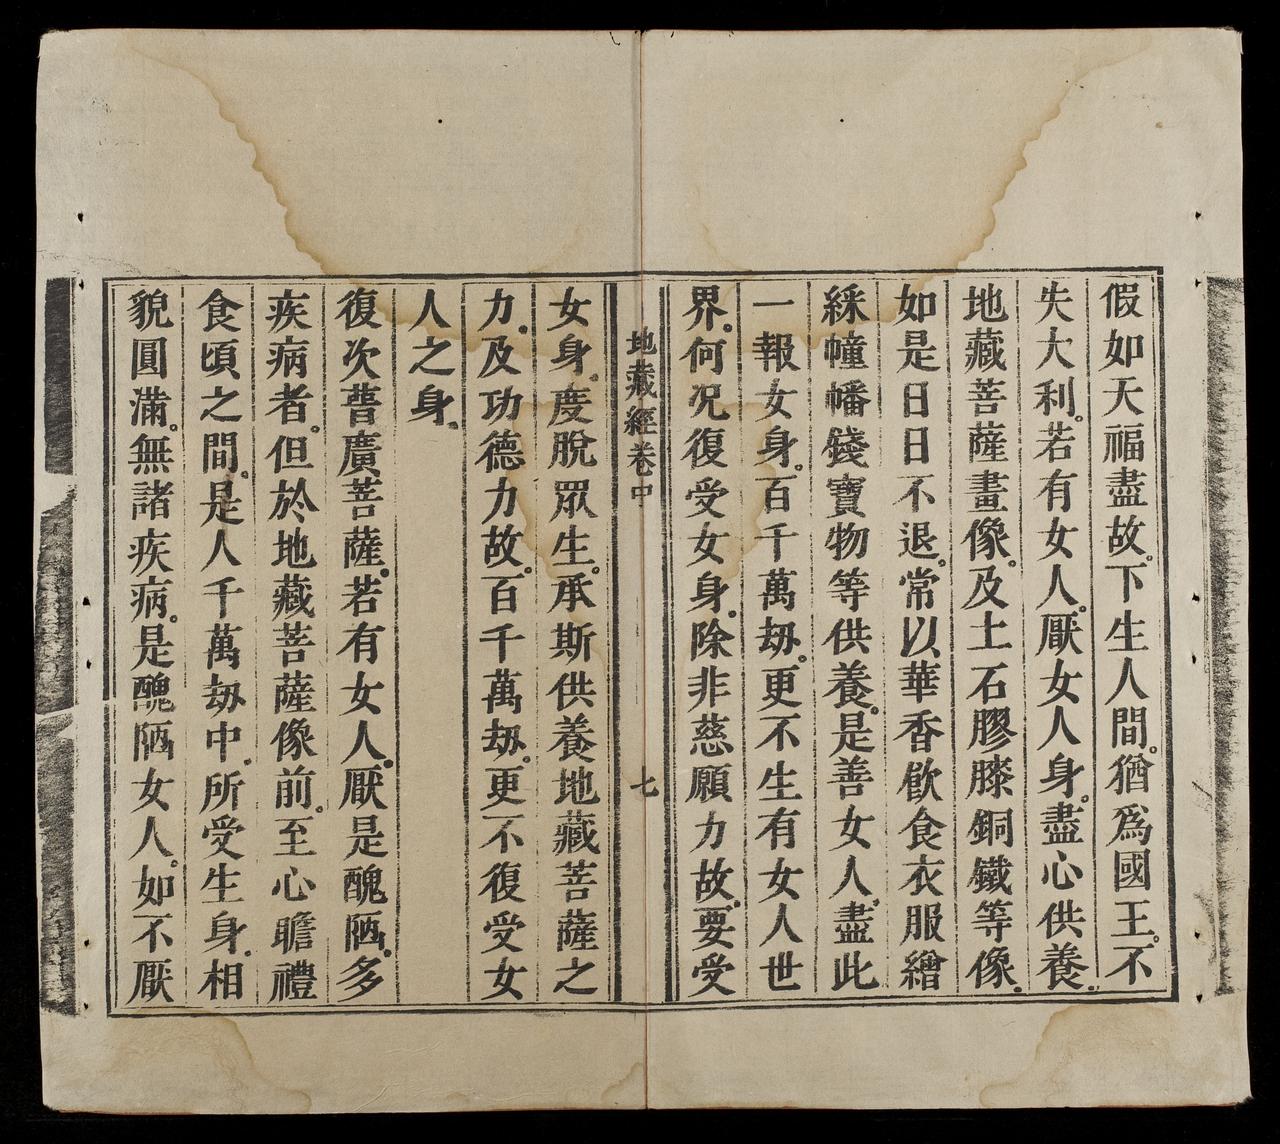 假如天福盡故。下生人間。猶爲國王。不
失大利。若有女人。厭女人身。盡心供養。
地藏菩薩畫像。及土石膠膝銅鐵等像。
如是日日不退。常以華香飮食衣服繒
綵幢幡錢寶物等供養。是善女人。盡此
一報女身。百千萬劫。更不生有女人世
界。何況復受女身。除非慈願力故。要受
地藏經卷中 七
女身。度脫眾生。承斯供養地藏菩薩之
力。及功德力故。百千萬劫。更不復受女
人之身。
復次普廣菩薩。若有女人。厭是醜陋。多
疾病者。但於地藏菩薩像前。至心瞻禮
食頃之間。是人千萬劫中。所受生身。相
貌圓滿。無諸疾病。是醜陋女人。如不厭